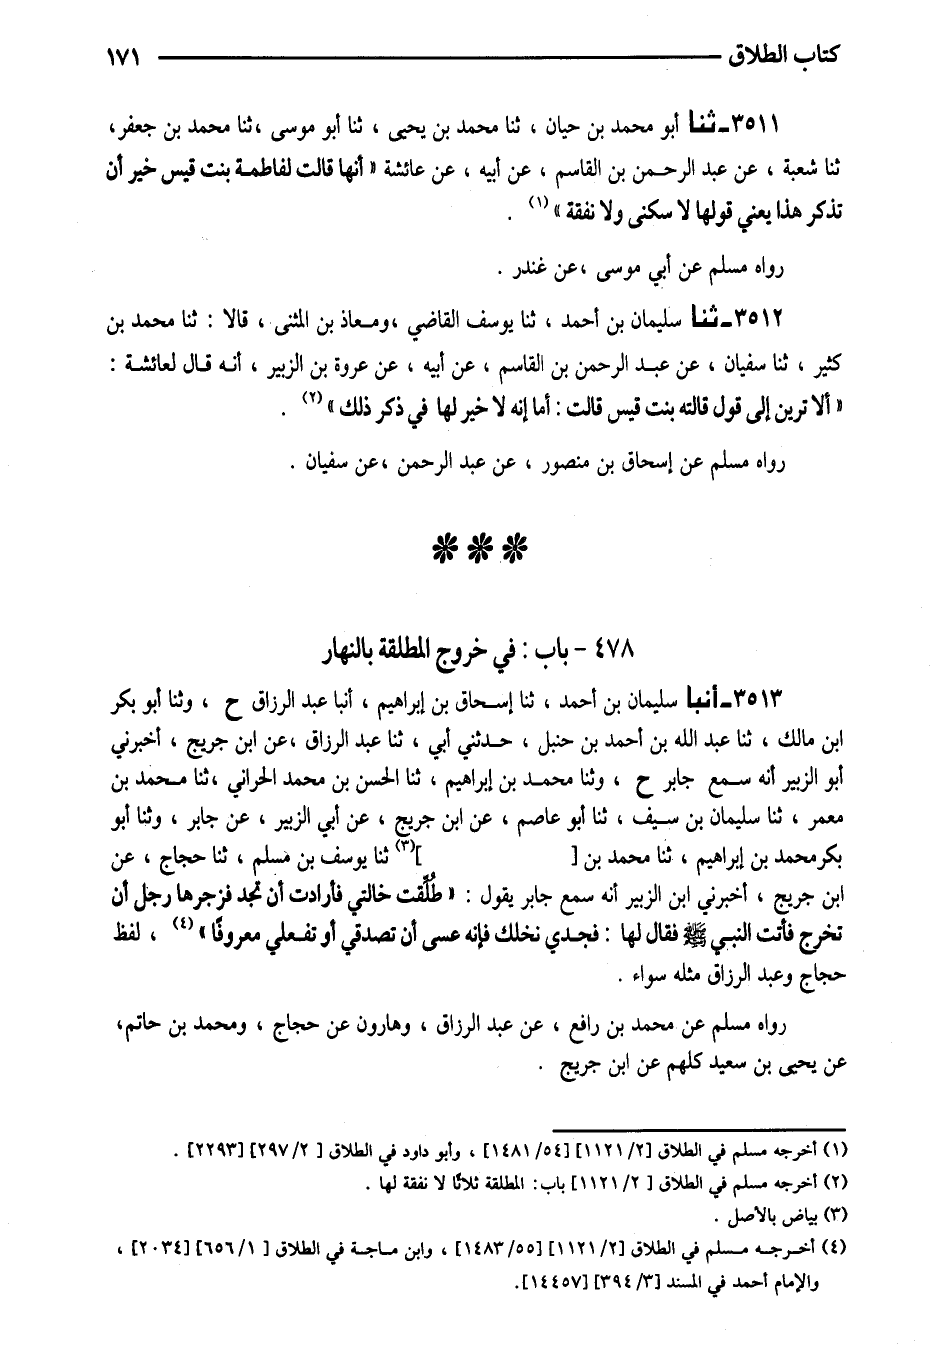 كتاب الطلاق ١٧١
٣٥١١ـ ثنا أبو محمد بن حيان ، ثنا محمد بن يحيى ، ثنا أبو موسى ،ثنا محمد بن جعفر،
ثنا شعبة ، عن عبد الرحمن بن القاسم ، عن أبيه ، عن عائشة « أنها قالت لفاطمة بنت قيس خير أن
تذكر هذا يعني قولها لا سكنى ولا نفقة » (١) .
رواه مسلم عن أبي موسى ،عن غندر .
٣٥١٢ـ ثنا سليمان بن أحمد ، ثنا يوسف القاضي ،ومعاذ بن المثنى ، قالا : ثنا محمد بن
كثير ، ثنا سفيان ، عن عبد الرحمن بن القاسم ، عن أبيه ، عن عروة بن الزبير ، أنه قال لعائشة :
« ألا ترين إلى قول قالته بنت قيس قالت : أما إنه لا خير لها في ذكر ذلك » (٢) .
رواه مسلم عن إسحاق بن منصور ، عن عبد الرحمن ،عن سفيان .
٤٧٨ - باب : في خروج المطلقة بالنهار
٣٥١٣ـ أنبا سليمان بن أحمد ، ثنا إسحاق بن إبراهيم ، أنبا عبد الرزاق ح ، وثنا أبو بكر
ابن مالك ، ثنا عبد الله بن أحمد بن حنبل ، حدثني أبي ، ثنا عبد الرزاق ،عن ابن جريج ، أخبرني
أبو الزبير أنه سمع جابر ح ، وثنا محمد بن إبراهيم ، ثنا الحسن بن محمد الحراني ،ثنا محمد بن
معمر ، ثنا سليمان بن سيف ، ثنا أبو عاصم ، عن ابن جريج ، عن أبي الزبير ، عن جابر ، وثنا أبو
بكرمحمد بن إبراهيم ، ثنا محمد بن [ ](٣) ثنا يوسف بن مسلم ، ثنا حجاج ، عن
ابن جريج ، أخبرني ابن الزبير أنه سمع جابر يقول : « طُلِّقت خالتي فأرادت أن تجد فزجرها رجل أن
تخرج فأتت النبي ﷺ فقال لها : فجدي نخلك فإنه عسى أن تصدقي أو تفعلي معروفًا » (٤) ، لفظ
حجاج وعبد الرزاق مثله سواء .
رواه مسلم عن محمد بن رافع ، عن عبد الرزاق ، وهارون عن حجاج ، ومحمد بن حاتم،
عن يحيى بن سعيد كلهم عن ابن جريج .
(١) أخرجه مسلم في الطلاق [٢/ ١١٢١] [٥٤/ ١٤٨١] ، وأبو داود في الطلاق [ ٢/ ٢٩٧] [٢٢٩٣] .
(٢) أخرجه مسلم في الطلاق [ ٢/ ١١٢١] باب: المطلقة ثلاثًا لا نفقة لها .
(٣) بياض بالأصل .
(٤) أخرجه مسلم في الطلاق [٢/ ١١٢١] [٥٥/ ١٤٨٣] ، وابن ماجة في الطلاق [ ١/ ٦٥٦] [٢٠٣٤] ،
والإمام أحمد في المسند [٣/ ٣٩٤] [١٤٤٥٧].